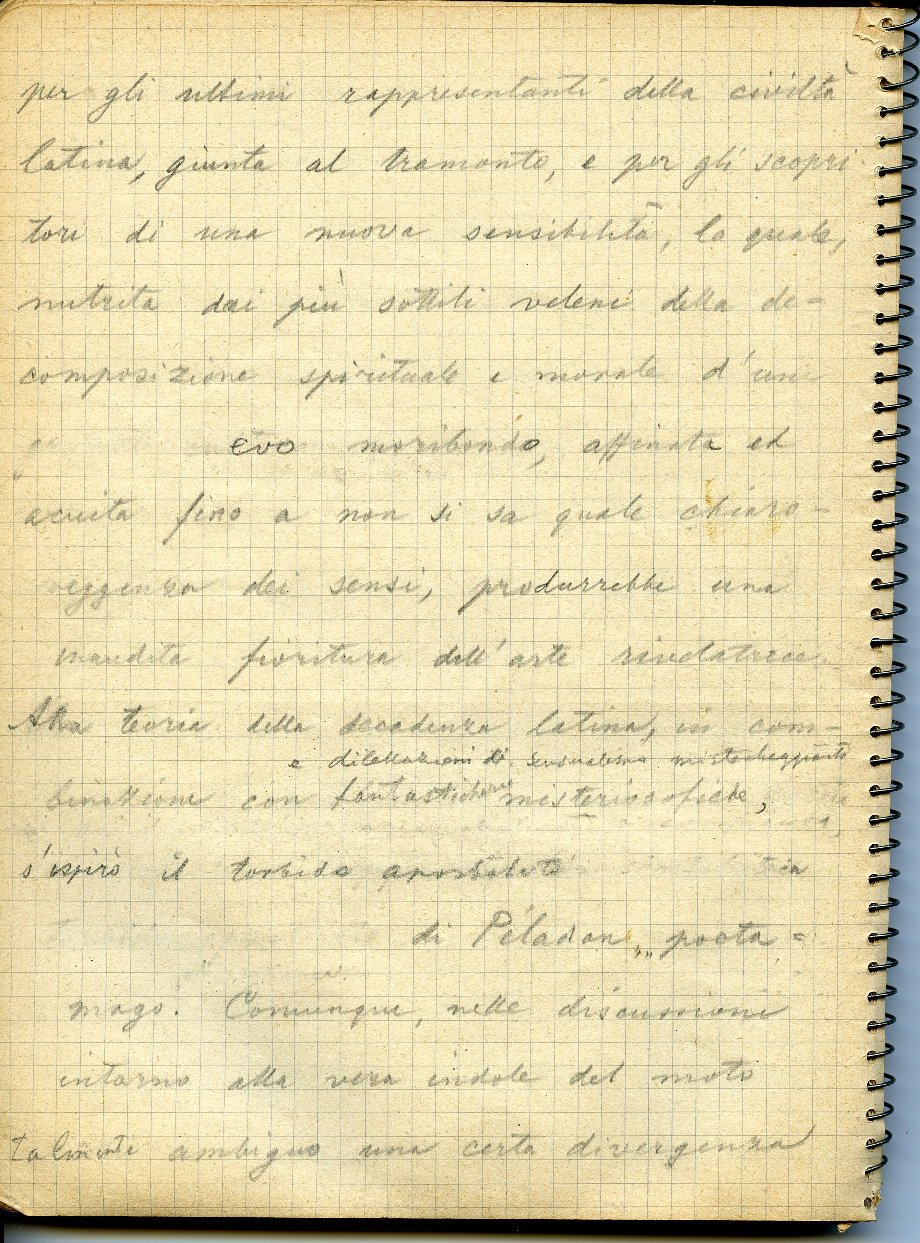 per gli ultimi rappresentanti della civiltà
latina, giunta al tramonto, e per gli scopri
tori di una nuova sensibilità, la quale,
nutrita dai più sottili veleni della de=
composizione spirituale e morale d'un
evo moribondo, affinata ed
acuita fino a non si sa quale chiaro-
veggenza dei sensi, produrrebbe una
inaudita fioritura dell'arte rivelatrice.
Alla teoria della decadenza latina, in com-
e dilettazioni di sensualismo misticheggiante
binazione con fantasticherie misteriosofiche,
s'ispirò il torbido apostolato
di Péladan, poeta=
mago. Comunque, nelle discussioni
intorno alla vera indole del moto
talmente ambiguo una certa divergenza